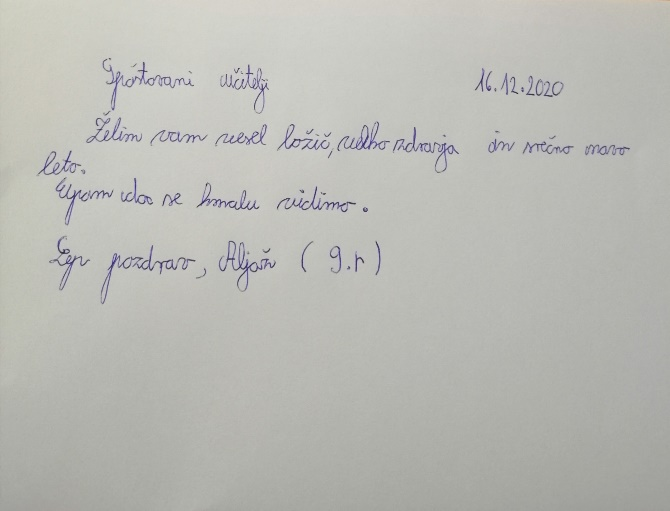 Spoštovani učitelji 16.12.2020
Želim vam vesel božič, veliko zdravja in srečno novo
leto.
Upam da se kmalu vidimo.
Lep pozdrav, Aljaž (9.r)